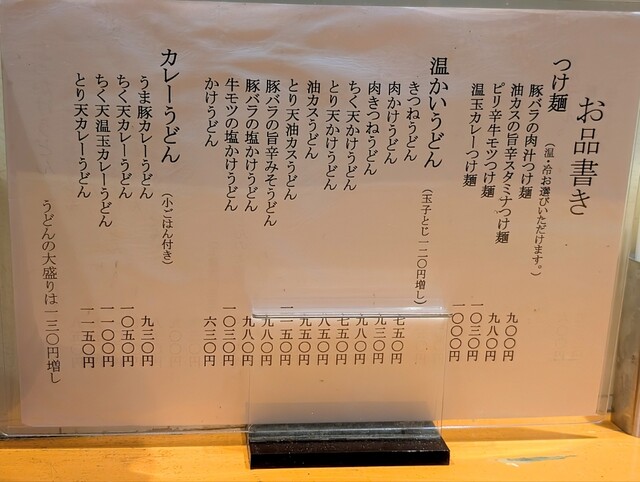 お品書き
つけ麺
(温・冷お選びいただけます。)
豚バラの肉汁つけ麺 九〇〇円
油カスの旨辛スタミナつけ麺 九八〇円
ピリ辛牛モツつけ麺 一〇三〇円
温玉カレーつけ麺 一〇〇〇円
温かいうどん (玉子とじ一二〇円増し)
きつねうどん 七五〇円
肉かけうどん 九三〇円
肉きつねうどん 九八〇円
ちく天かけうどん 七五〇円
とり天かけうどん 八五〇円
油カスうどん 九五〇円
とり天油カスうどん 一一五〇円
豚バラの旨辛みそうどん 九八〇円
豚バラの塩かけうどん 九八〇円
牛モツの塩かけうどん 一〇三〇円
かけうどん 六三〇円
カレーうどん (小ごはん付き)
うま豚カレーうどん 九三〇円
ちく天カレーうどん 一〇五〇円
ちく天温玉カレーうどん 一一〇〇円
とり天カレーうどん 一一五〇円
うどんの大盛りは一三〇円増し